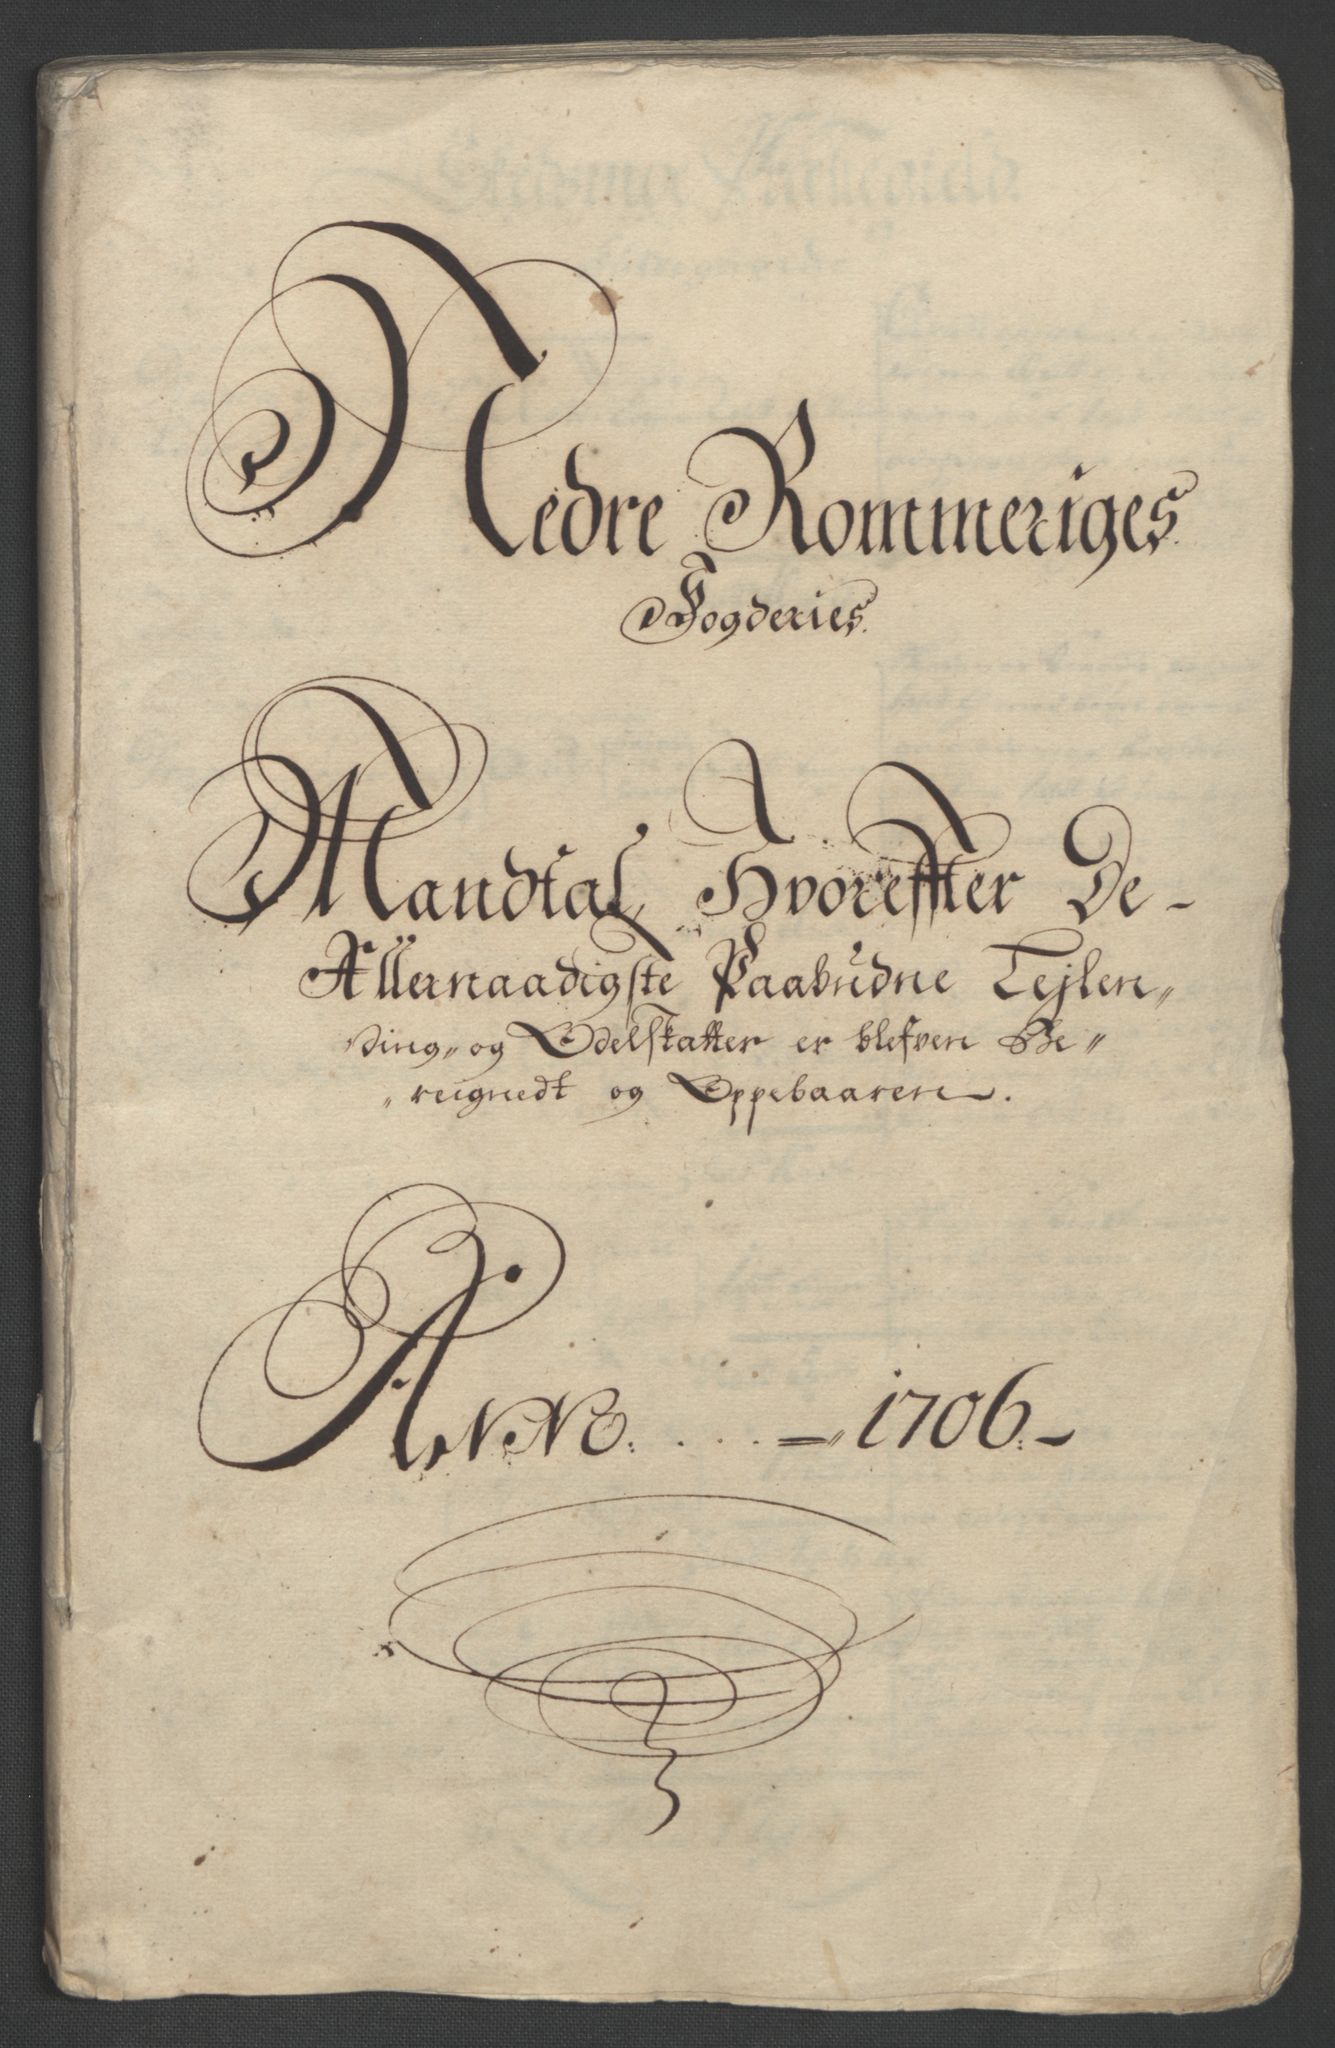 Nedre Rommeriges
Fogderies
Mandtal, Hvoreffter De-
Allernaadigste Paabudne Lejlen„
ding„ og Odelskatter er blefven Be„
„reignedt og Oppebaaren.
ANNO. . . . . =„ 1706.-